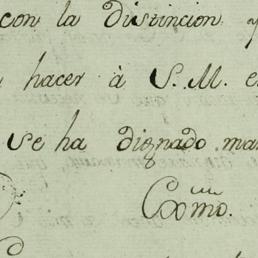 con la Distincion
hacer à S.M.
se ha dignado
Exmo.